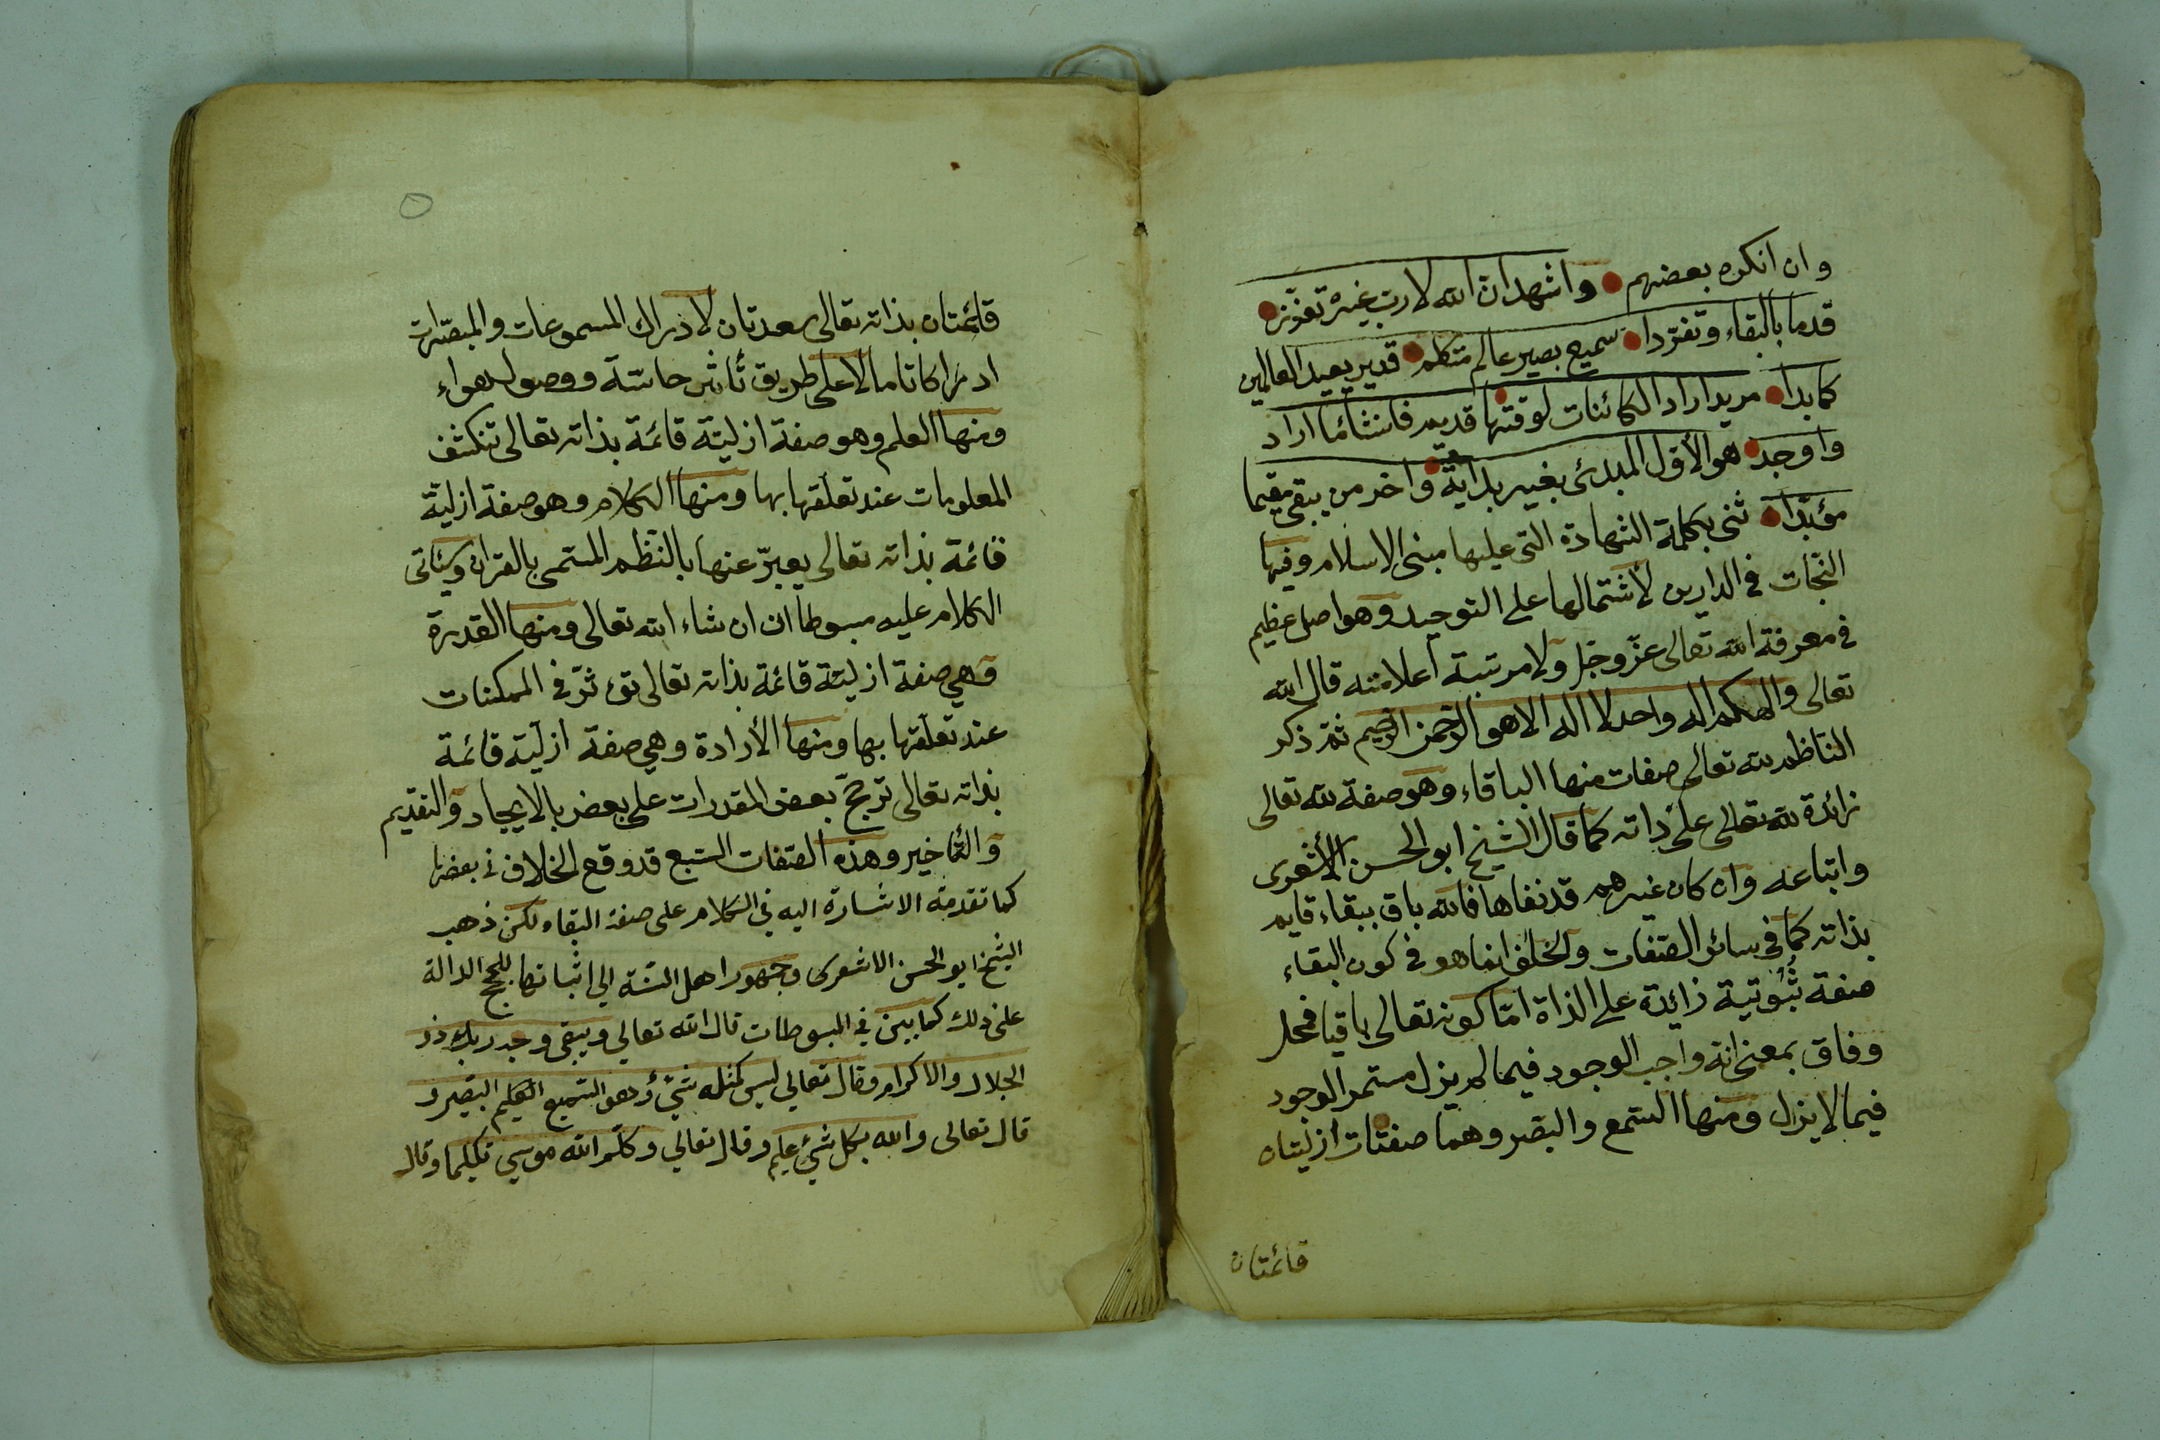 وان انكره بعضهم واشهد ان الله لا رب غيره تعزز
قدما بالبقاء وتفردا سميع بصير عالم متكلم قدير يعيد العالمين
كما بدا مريد اراد الكائنات لوقتها قديم فانشا ما اراد
واوجد هو الأول المبدئ بغير بداية واخر من يبقى مقيما
مؤبدا ثنى بكلمة الشهادة التى عليها مبنى الاسلام وفيها
النجات في الدارين لأشتمالها على التوحيد وهو اصل عظيم
في معرفة الله تعالى عز وجل ولا مرتبة أعلا منه قال الله
تعالى والهكم اله واحد لا اله الا هو الرحمن الرحيم ثم ذكر
الناظم لله تعالى صفات منها الباقاء وهو صفة لله تعالى
زائدة لله تعالى على ذاته كما قال الشيخ ابو الحسن الأشعرى
واتباعه وان كان غيرهم قد نفاها فالله باق ببقاء قايم
بذاته كما في سائر الصفات والخلف انما هو في كون البقاء
صفة ثبوتية زائدة على الذاة امّا كونه تعالى باقيا فمحل
وفاق بمعنى انه واجب الوجود فيما لم يزل مستمر الوجود
فيما لا يزال ومنها السمع والبصر وهما صفتان أزليتان
قائمتان
قائمتان بذاته تعالى معدتان لادراك المسموعات والمبصرات
ادراكا تاما لا على طريق تأثر حاسة ووصول هواء
ومنها العلم وهو صفة ازليّة قائمة بذاته تعالى تنكشف
المعلومات عند تعلقها بها ومنها الكلام وهو صفة ازليّة
قائمة بذاته تعالى يعبّر عنها بالنظم المسمى بالقران وسيأتى
الكلام عليه مبسوطا ان ان شاء الله تعالى ومنها القدرة
وهي صفة ازليّة قائمة بذاته تعالى تؤثر في الممكنات
عند تعلقها بها ومنها الأرادة وهي صفة ازلية قائمة
بذاته تعالى ترجح بعض المقدرات على بعض بالايجاد والتقديم
والتأخير وهذه الصفات السبع قد وقع الخلاف في بعضها
كما تقدمة الاشارة اليه في الكلام على صفة البقاء لكن ذهب
الشيخ ابو الحسن الاشعرى وجمهور اهل السنة الي اثباتها للحجج الدالة
على ذلك كما بين في المبسوطات قال الله تعالي ويبقى وجه ربك ذو
الجلال والاكرام وقال تعالي ليس كمثله شيئ وهو السميع العليم البصير و
قال تعالى والله بكل شيئ عليم وقال تعالي وكلم الله موسي تكليما وقال